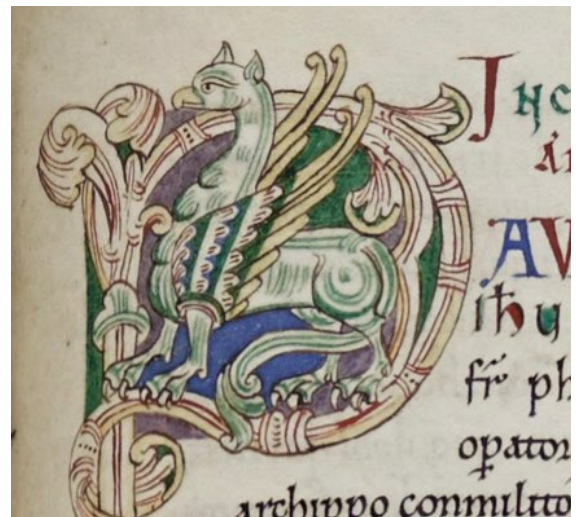 Inc
AV
ihu
fr̄ ph
opator
archippo conmilito